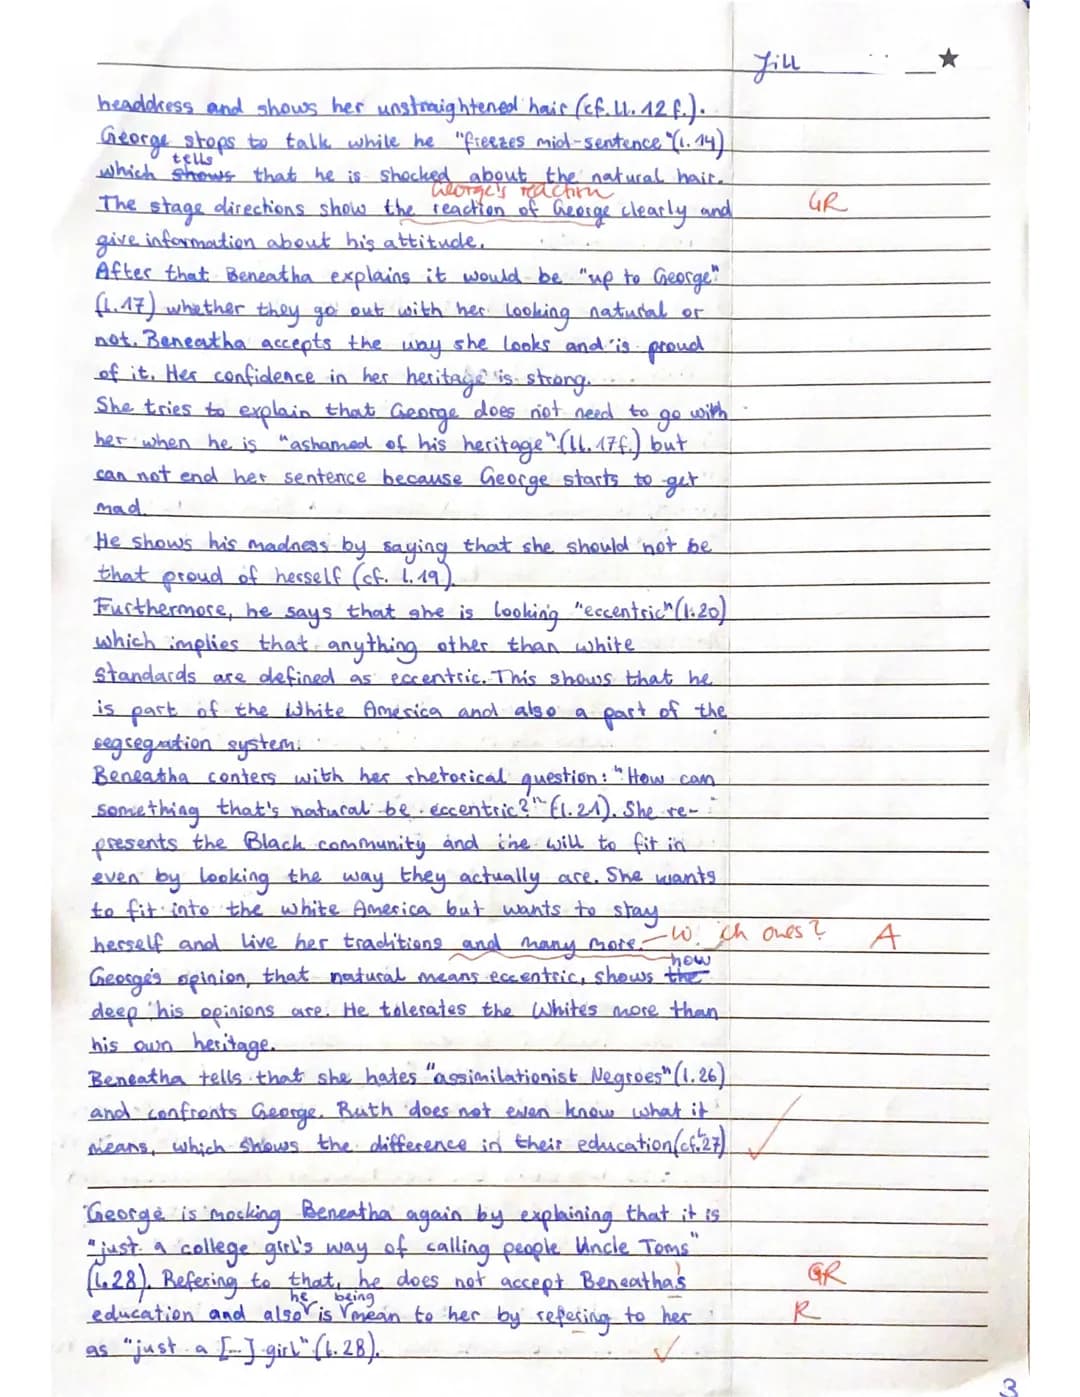 Jill
headdress and shows her unstraightened hair (cf. ll. 12 f.).
George stops to talk while he "freezes mid-sentence" (l. 14)
tells
which shows that he is shocked about the natural hair.
George's reaction
The stage directions show the reaction of George clearly and GR
give information about his attitude.
After that Beneatha explains it would be "up to George"
(l. 17) whether they go out with her looking natural or
not. Beneatha accepts the way she looks and is proud
of it. Her confidence in her heritage is strong.
She tries to explain that George does not need to go with
her when he is "ashamed of his heritage" (ll. 17f.) but
can not end her sentence because George starts to get
mad.
He shows his madness by saying that she should not be
that proud of herself (cf. l. 19).
Furthermore, he says that she is looking "eccentric" (l. 20)
which implies that anything other than white
standards are defined as eccentric. This shows that he
is part of the White America and also a part of the
segregation system.
Beneatha conters with her rhetorical question: "How can
something that's natural be eccentric?" (l. 21). She re-
presents the Black community and the will to fit in
even by looking the way they actually are. She wants
to fit into the white America but wants to stay
herself and live her traditions and many more. ch ones? A
how
George's opinion, that natural means eccentric, shows the
deep his opinions are. He tolerates the Whites more than
his own heritage.
Beneatha tells that she hates "assimilationist Negroes" (l. 26)
and confronts George. Ruth does not even know what it
means, which shows the difference in their education (cf. l. 27)
George is mocking Beneatha again by explaining that it is
"just a college girl's way of calling people Uncle Toms"
(l. 28). Refering to that, he does not accept Beneatha's GR
he being
education and also is mean to her by refering to her R
as "just a [...] girl" (l. 28).
3